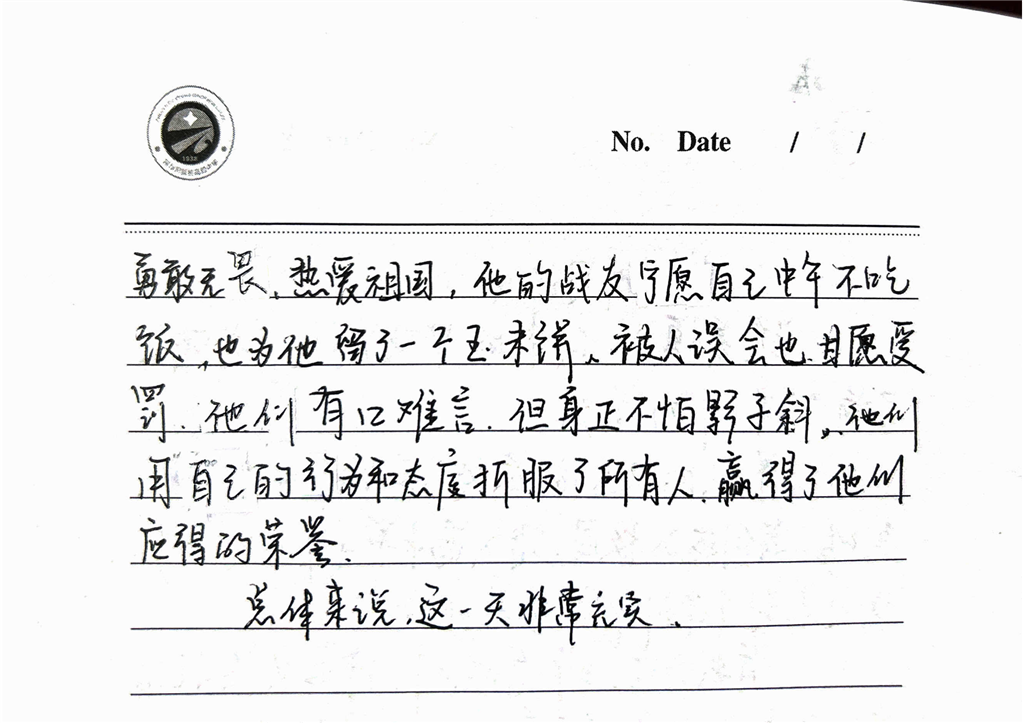 No. Date / /
勇敢无畏、热爱祖国，他的战友宁愿自己中午不吃
饭，也为他留了一个玉米饼、被人误会也甘愿受
罚.他们有口难言.但身正不怕影子斜，他们
用自己的行为和态度折服了所有人.赢得了他们
应得的荣誉.
总体来说，这一天非常充实.